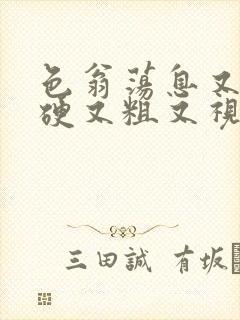 色翁荡息又
硬又粗又视
三田誠 有坂